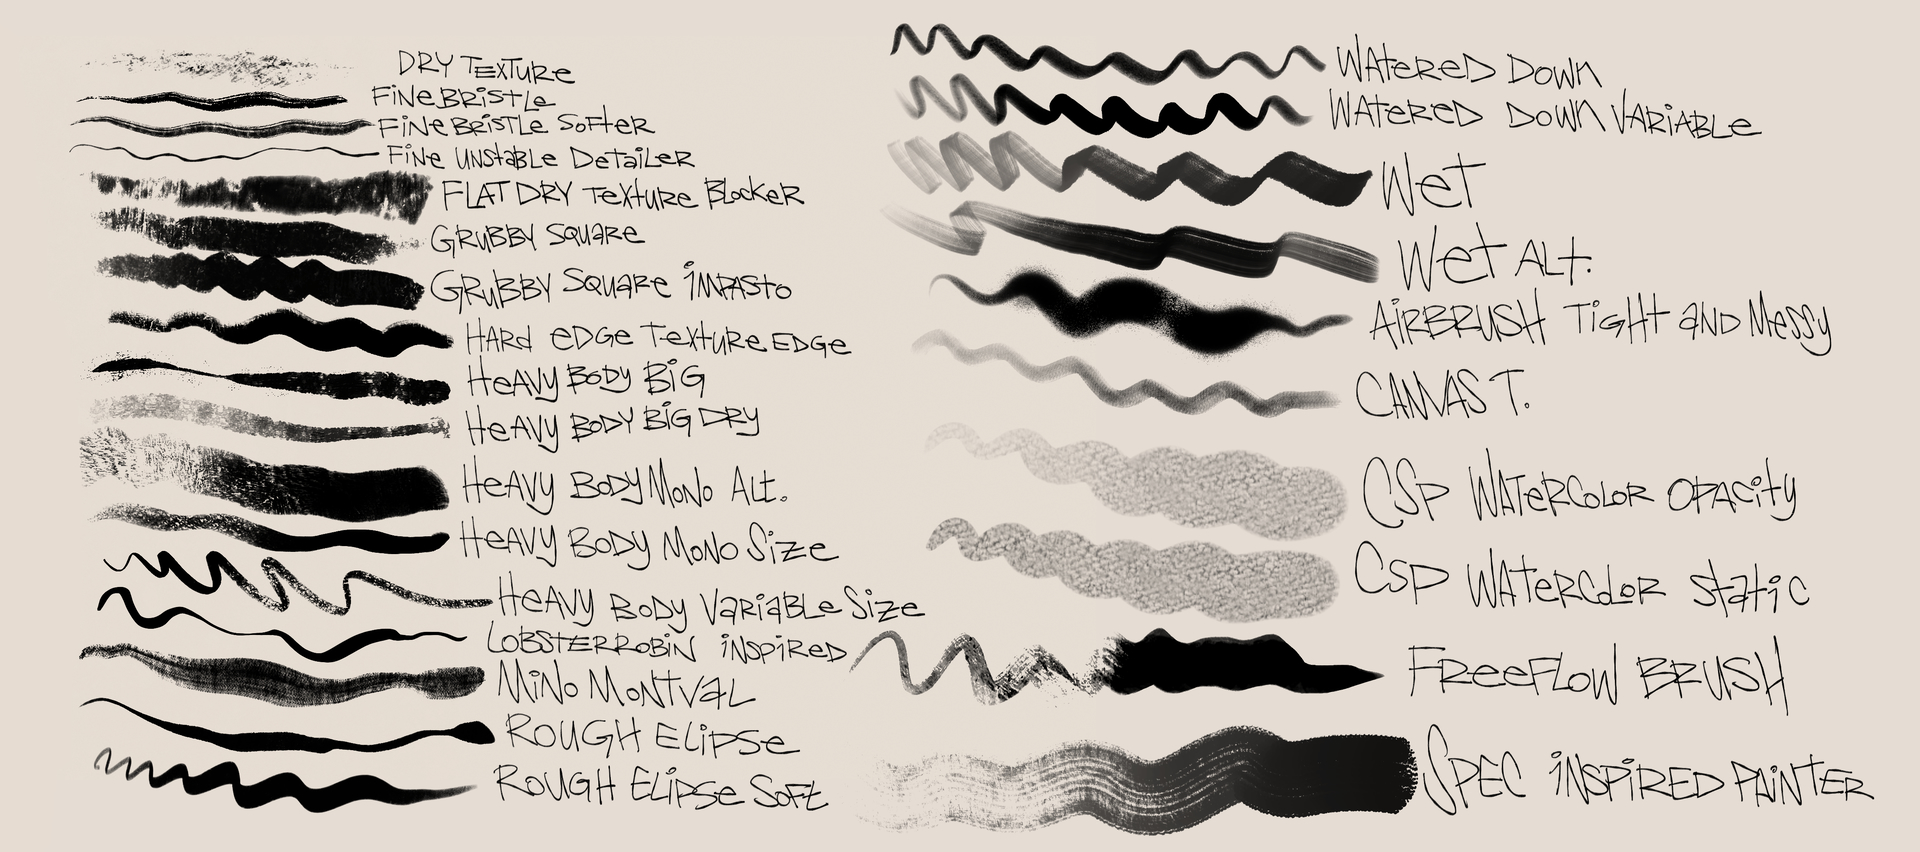 DRY TEXTURE
FINE BRISTLE
FINE BRISTLE SOFTER
FINE UNSTABLE DETAILER
FLAT DRY TEXTURE BLOCKER
GRUBBY SQUARE
GRUBBY SQUARE IMPASTO
HARD EDGE TEXTURE EDGE
HEAVY BODY BIG
HEAVY BODY BIG DRY
HEAVY BODY MONO ALT.
HEAVY BODY MONO SIZE
HEAVY BODY VARIABLE SIZE
LOBSTERROBIN INSPIRED
MINO MONTVAL
ROUGH ELIPSE
ROUGH ELIPSE SOFT
WATERED DOWN
WATERED DOWN VARIABLE
WET
WET ALT.
AIRBRUSH TIGHT AND MESSY
CANVAS T.
CSP WATERCOLOR OPACITY
CSP WATERCOLOR STATIC
FREEFLOW BRUSH
SPEC INSPIRED PAINTER